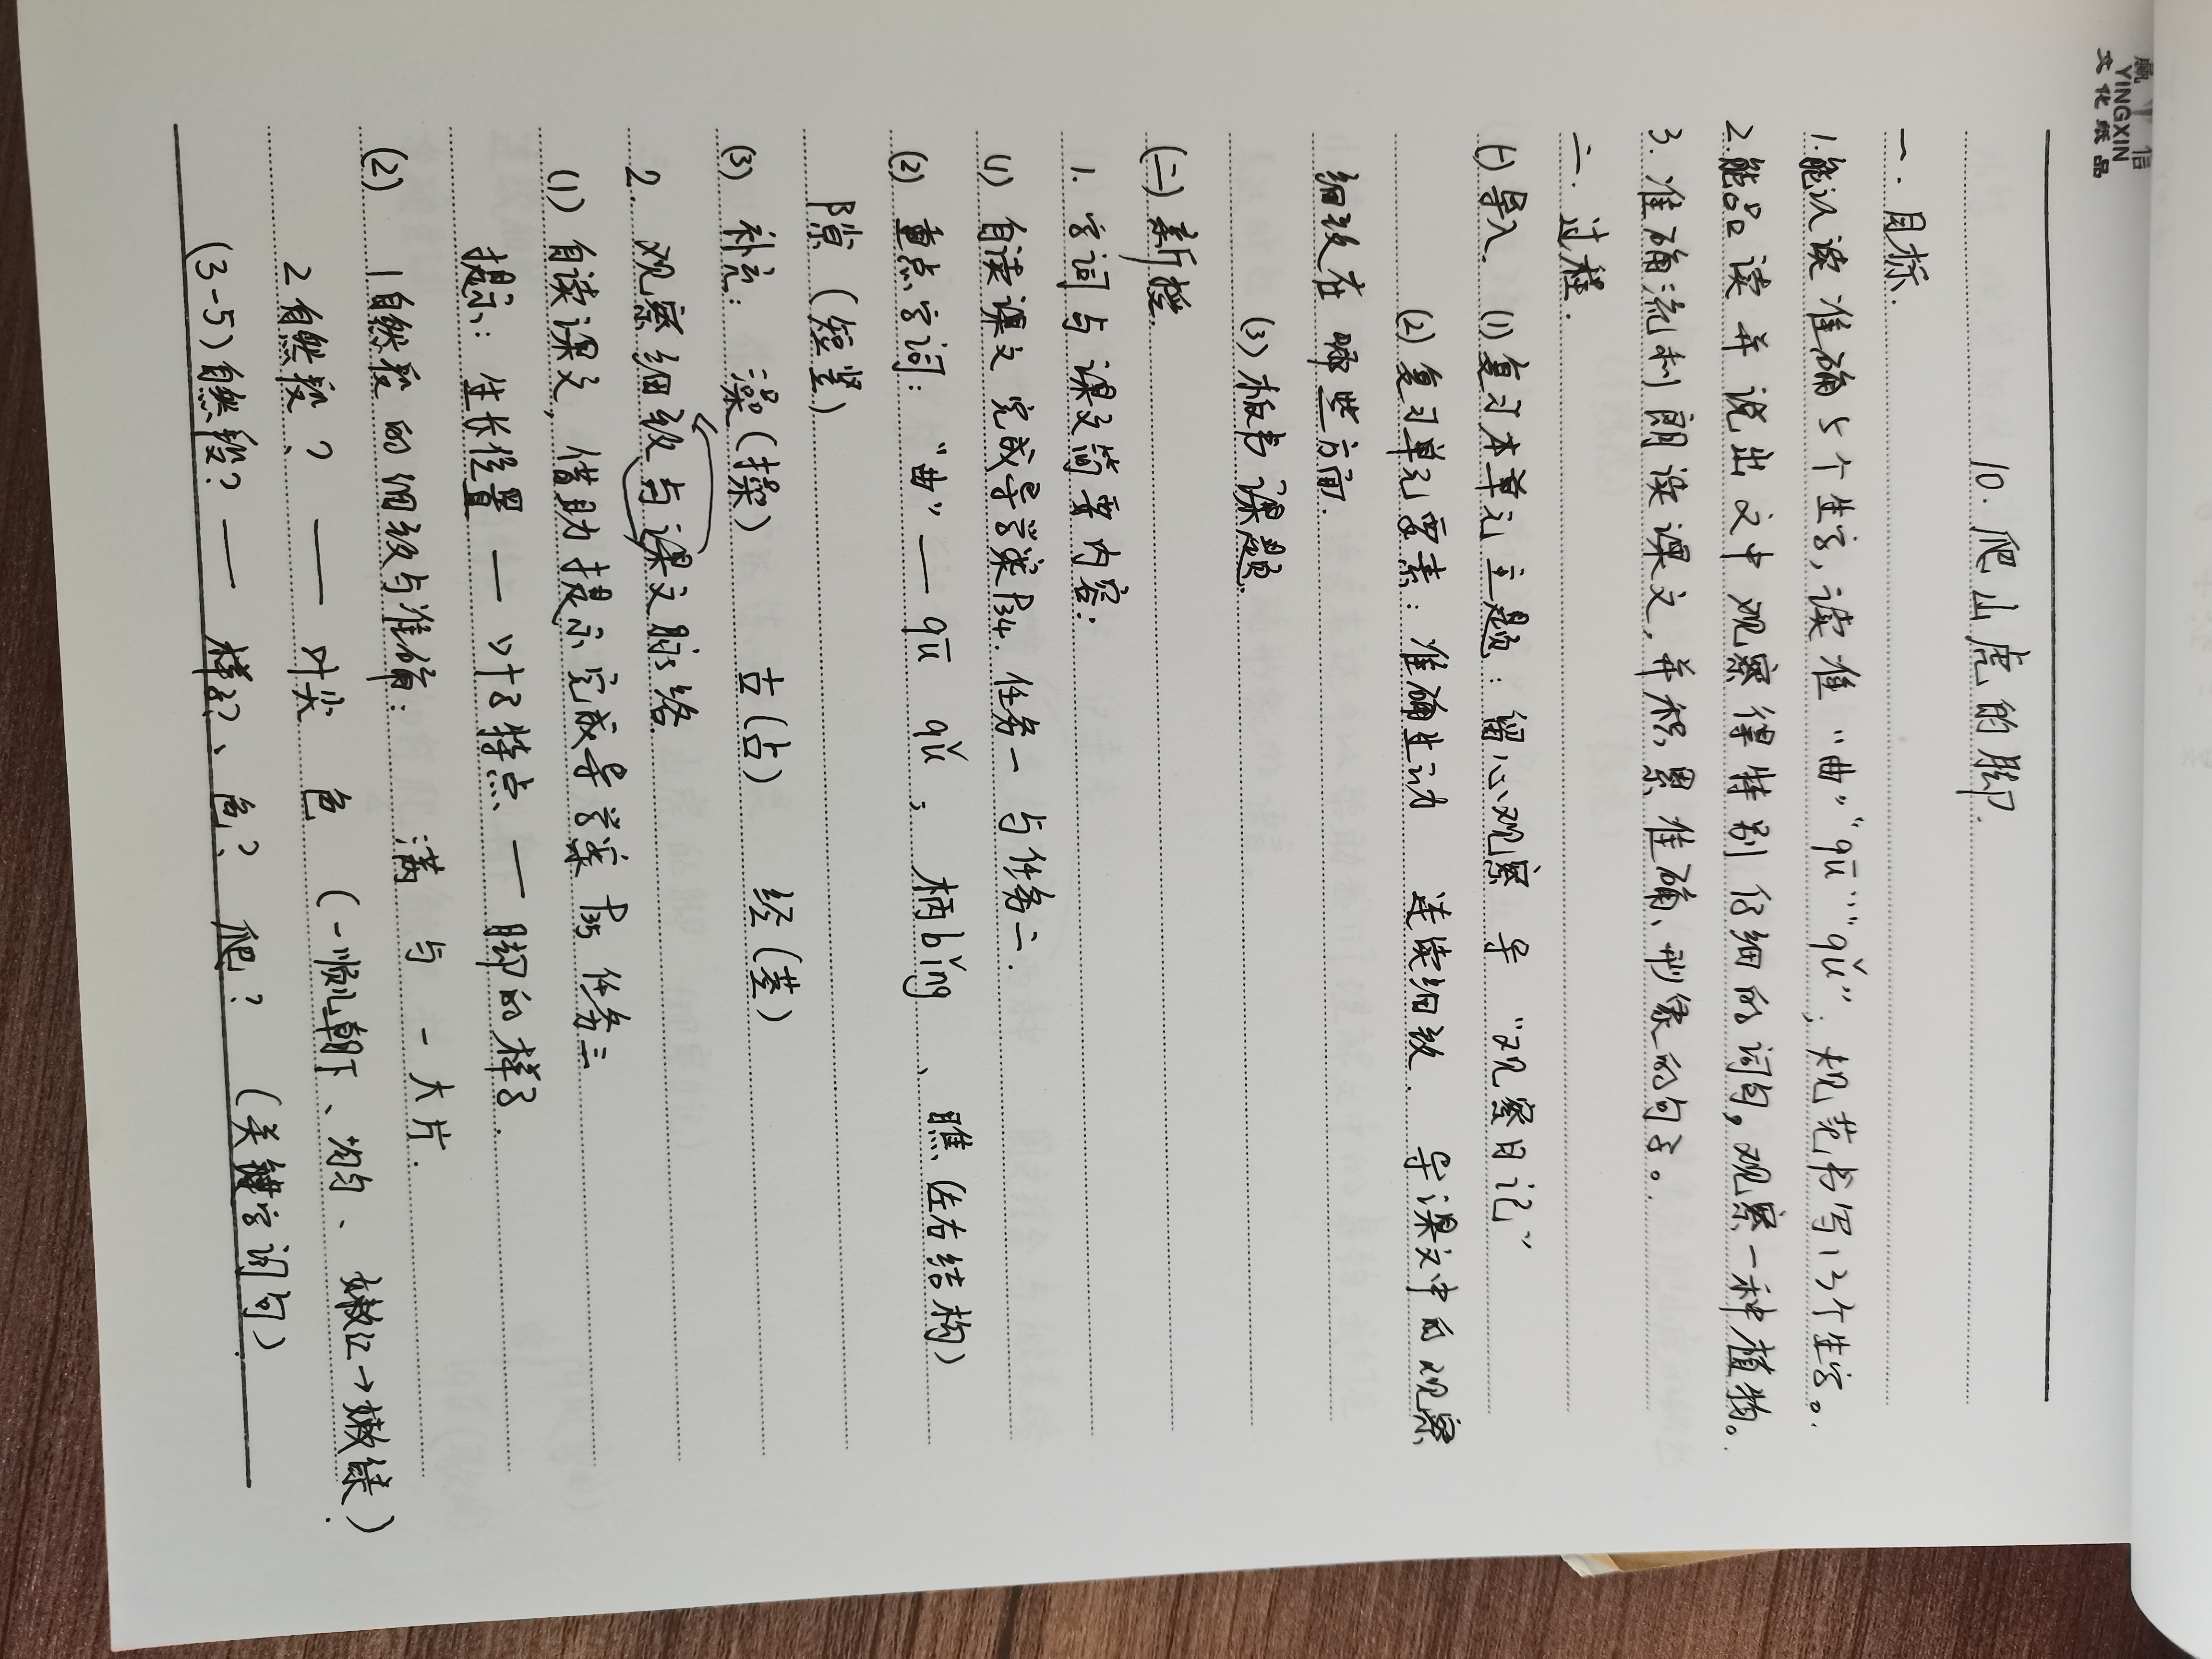 赢信
YINGXIN
文化纸品
10. 爬山虎的脚.
一. 目标.
1.能认读准确5个生字,读准“曲”“qū”“qǔ”;规范书写13个生字。
2.能品读并说出文中观察得特别仔细的词句,观察一种植物。
3.准确流利朗读课文,并积累准确、形象的句子。
二. 过程.
(一)导入. (1)复习本单元主题:留心观察 导 “观察日记”
(2)复习单元要素:准确生动 连续细致. 导课文中的观察
细致在哪些方面.
(3)板书课题.
(二)新授.
1. 字词与课文简要内容:
(1) 自读课文 完成导学案P34. 任务一与任务二.
(2) 重点字词:“曲”— qū qǔ; 柄bǐng 、瞧(左右结构)
隙(短竖)
(3) 补充: 澡(操) 古(占) 经(茎)
2. 观察细致与课文脉络
(1) 自读课文,借助提示完成导学案 P35 任务三
提示:生长位置 — 叶子特点 — 脚的样子.
(2) 1自然段的细致与准确: 满 与 一大片.
2自然段? — 叶尖 色 (一顺儿朝下、均匀、嫩红→嫩绿)
(3-5)自然段? — 样子?、色?、爬? (关键字词句)